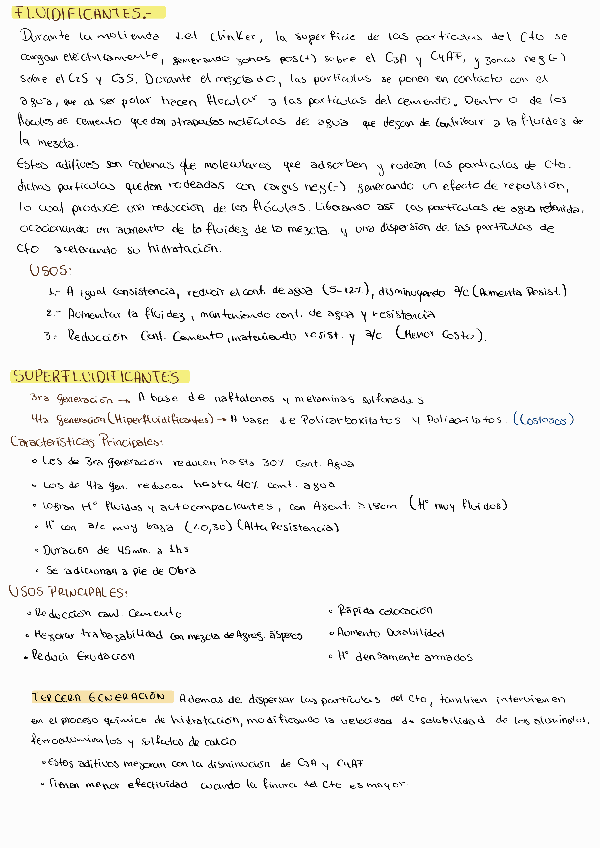 FLUIDIFICANTES.-
Durante la molienda del clinker, la superficie de las particulas del Cto se
cargan electricamente, generando zonas pos(+) sobre el C3A y C4AF, y zonas neg(-)
sobre el C2S y C3S. Durante el mezclado, las particulas se ponen en contacto con el
agua, que al ser polar hacen flocular a las particulas del cemento. Dentro de los
floculos de cemento quedan atrapadas moleculas de agua que dejan de contribuir a la fluidez de
la mezcla.
Estos aditivos son cadenas que moleculares que adsorben y rodean las particulas de Cto.
dichas particulas quedan rodeadas con cargas neg(-) generando un efecto de repulsión,
lo cual produce una reducción de los flóculos. Liberando así las particulas de agua retenida,
ocacionando un aumento de la fluidez de la mezcla y una dispersión de las particulas de
Cto acelerando su hidratación.
USOS:
1.- A igual consistencia, reducir el cont. de agua (5-12%), disminuyendo a/c (Aumenta Resist.)
2.- Aumentar la fluidez, manteniendo cont. de agua y resistencia
3.- Reducción Cont. Cemento, manteniendo resist. y a/c (Menor Costo).
SUPERFLUIDIFICANTES
3ra generación → A base de naftalenos y melaminas sulfonadas
4ta generación (Hiperfluidificantes) → A base de Policarboxilatos y Poliacrilatos (Costosos)
Características Principales:
• Los de 3ra generación reducen hasta 30% Cont. Agua
• Los de 4ta gen. reducen hasta 40% cont. agua
• Logran H° fluidos y autocompactantes, con Asent. >18cm (H° muy fluidos)
• H° con a/c muy baja (<0,30) (Alta Resistencia)
• Duración de 45min. a 1hs
• Se adicionan a pie de Obra
USOS PRINCIPALES:
• Reducción cant. Cemento
• Rápida colocación
• Mejorar trabajabilidad con mezcla de Agreg. ásperos
• Aumento Durabilidad
• Reducir Exudación
• H° densamente armados
TERCERA GENERACIÓN Ademas de dispersar las particulas del Cto, tambien intervienen
en el proceso químico de hidratación, modificando la velocidad de solubilidad de los aluminatos,
ferroaluminatos y sulfatos de calcio
• Estos aditivos mejoran con la disminución de C3A y C4AF
• Tienen menor efectividad cuando la finura del Cto es mayor